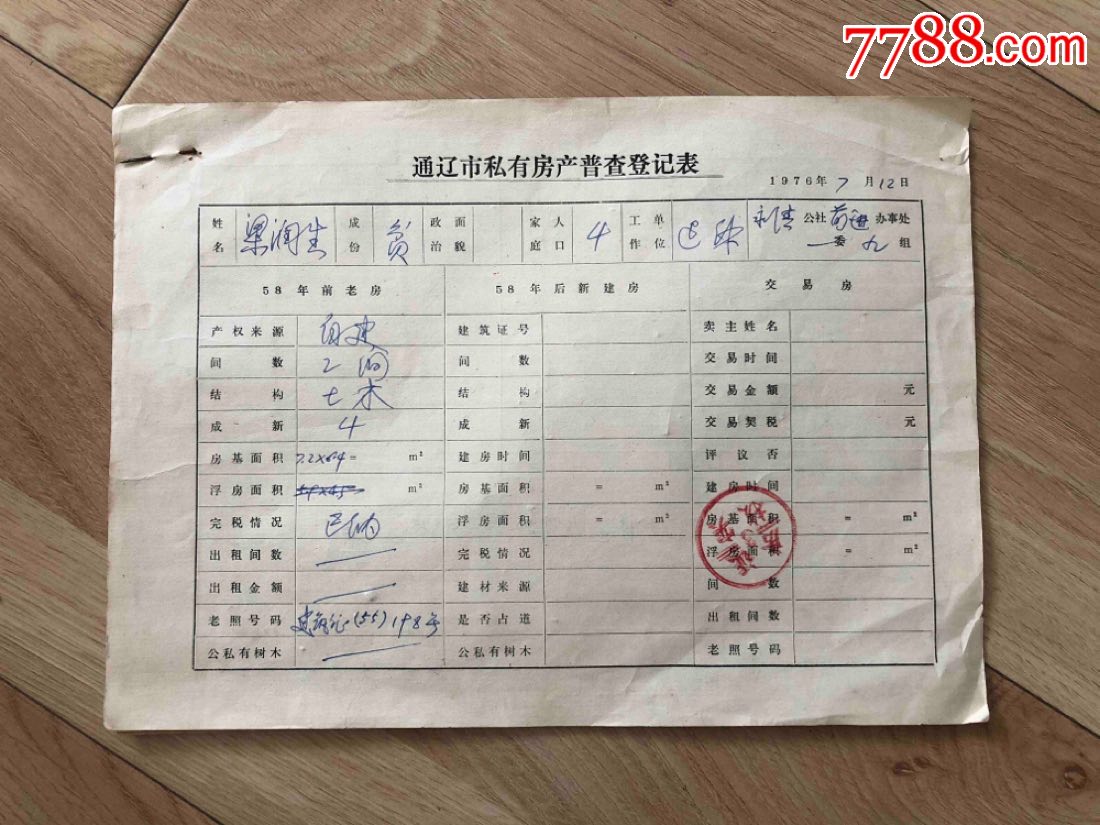 7788.com
通辽市私有房产普查登记表
1976年7月12日
姓名 梁润生 成份 贫 政治面貌 家庭人口 4 工作单位 公社 办事处
一委九组
58年前老房 58年后新建房 交易房
产权来源 自建 建筑证号 卖主姓名
间数 2间 间数 交易时间
结构 土木 结构 交易金额 元
成新 4 成新 交易契税 元
房基面积 7.2×6.4= m² 建房时间 评议否
浮房面积 m² 房基面积 = m² 建房时间
完税情况 已纳 浮房面积 = m² 房基面积 = m²
出租间数 完税情况 浮房面积 = m²
出租金额 建材来源 间数
老照号码 建筑证(55)198号 是否占道 出租间数
公私有树木 公私有树木 老照号码